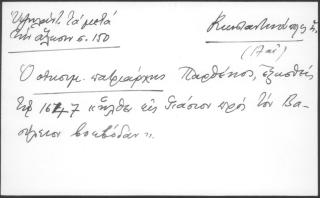 Ὑψηλάντ. Τὰ μετὰ
τὴν ἅλωσιν σ. 150
Κωνσταντινούπολις
(17 αἰ)
Ὁ οἰκουμ. πατριάρχης Παρθένιος, ἐξωσθεὶς
τῷ 1647 κ ἦλθεν εἰς Ἰάσιον πρὸς τὸν Βα-
σίλειον βοεβόδαν».